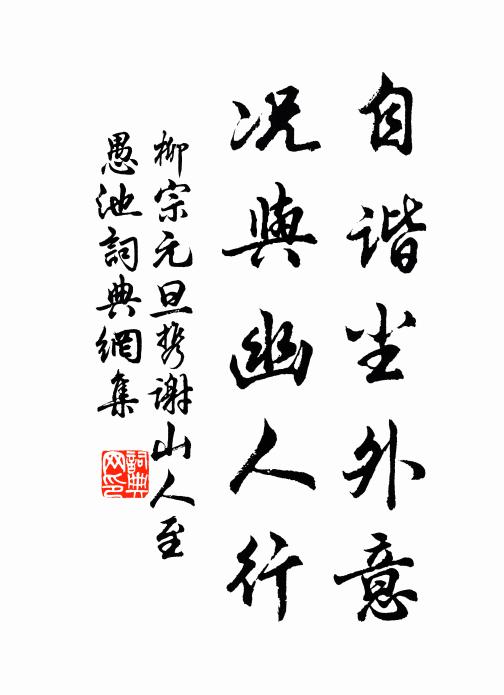 自谐尘外意
况與幽人行
柳宗元旦携谢山人至
愚池詞典網集
詞典网印